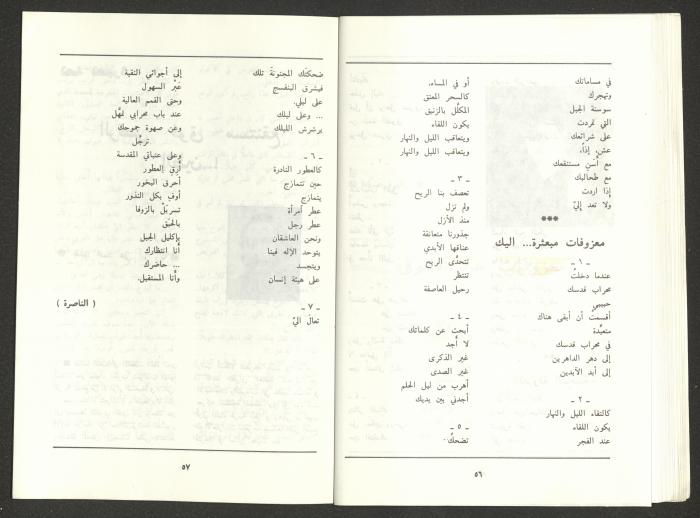 في مساماتك
وتهجرك
سوسنة الجبل
التي تمردت
على شرائعك
عش، إذاً،
مع أسن مستنقعك
مع طحالبك
إذا اردت
ولا تعد إليّ
***
معزوفات مبعثرة... اليك
ـ ١ ـ
عندما دخلتُ
محراب قدسك
حبيبي
أقسمتُ أن أبقى هناك
متعبِّدة
في محراب قدسك
إلى دهر الداهرين
إلى أبد الآبدين
ـ ٢ ـ
كالتقاء الليل والنهار
يكون اللقاء
عند الفجر
أو في المساء،
كالسحر المعتق
المكلّل بالزنبق
يكون اللقاء
ويتعاقب الليل والنهار
ويتعاقب الليل والنهار
ـ ٣ ـ
تعصف بنا الريح
ولم تزل
منذ الأزل
جذورنا متعانقة
عناقها الأبدي
تتحدَّى الريح
تنتظر
رحيل العاصفة
ـ ٤ ـ
أبحث عن كلماتك
لا أجد
غير الذكرى
غير الصدى
أهرب من ليل الحلم
أجدني بين يديك
ـ ٥ ـ
تضحكُ.
٥٦
ضحكتَك المجنونةَ تلك
فيشرق البنفسج
على ليلي.
... وعلى ليلك
يرشرش الليلك
ـ ٦ ـ
كالعطور النادرة
حين تتمازج
يتمازج
عطر أمرأة
عطر رجل
ونحن العاشقان
يتوحد الإله فينا
ويتجسد
على هيئة إنسان
ـ ٧ ـ
تعالَ اليّ
إلى أجوائي النقية
عَبْر السهول
وحتى القمم العالية
عند باب محرابي تمهَّل
وعن صهوة جموحك
ترجَّل
وعلى عتباتي المقدسة
أرِق العطور
أحرق البخور
أوفِ بكل النذور
تسربَلْ بالزوفا
بالحبق
بإكليل الجبل
أنا انتظارك
... حاضرك
وأنا المستقبل.
( الناصرة )
٥٧